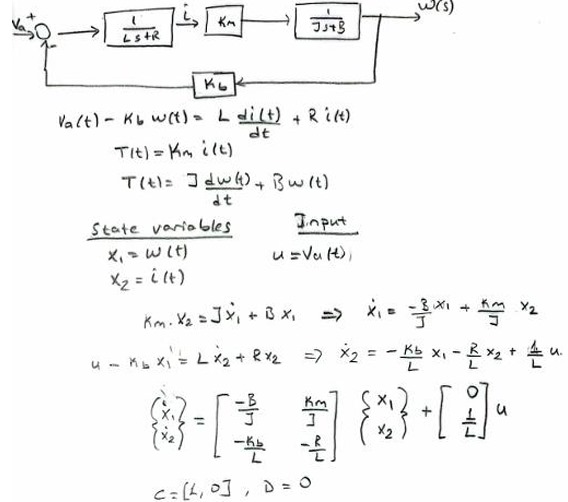 Va + 1/(Ls+R) i Km 1/(Js+B) w(s)
-
Kb
Va(t) - Kb w(t) = L di(t)/dt + R i(t)
T(t) = Km i(t)
T(t) = J dw(t)/dt + B w(t)
State variables Input
x₁ = w(t) u = Va(t),
x₂ = i(t)
Km . x₂ = J ẋ₁ + B x₁ ⇒ ẋ₁ = -B/J x₁ + Km/J x₂
u - Kb x₁ = L ẋ₂ + R x₂ ⇒ ẋ₂ = - Kb/L x₁ - R/L x₂ + 1/L u.
{ẋ₁ ẋ₂} = [-B/J Km/J -Kb/L -R/L] {x₁ x₂} + [0 1/L] u
C = [1, 0] , D = 0